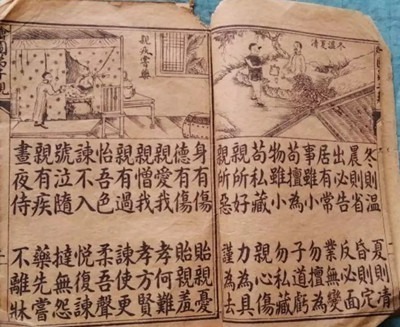 冬溫夏清
冬則溫 夏則清
晨則省 昏則定
出必告 反必面
居有常 業無變
事雖小 勿擅為
苟擅為 子道虧
物雖小 勿私藏
苟私藏 親心傷
親所好 力為具
親所惡 謹為去
親疾嘗藥
身有傷 貽親憂
德有傷 貽親羞
親愛我 孝何難
親憎我 孝方賢
親有過 諫使更
怡吾色 柔吾聲
諫不入 悅復諫
號泣隨 撻無怨
親有疾 藥先嘗
晝夜侍 不離牀